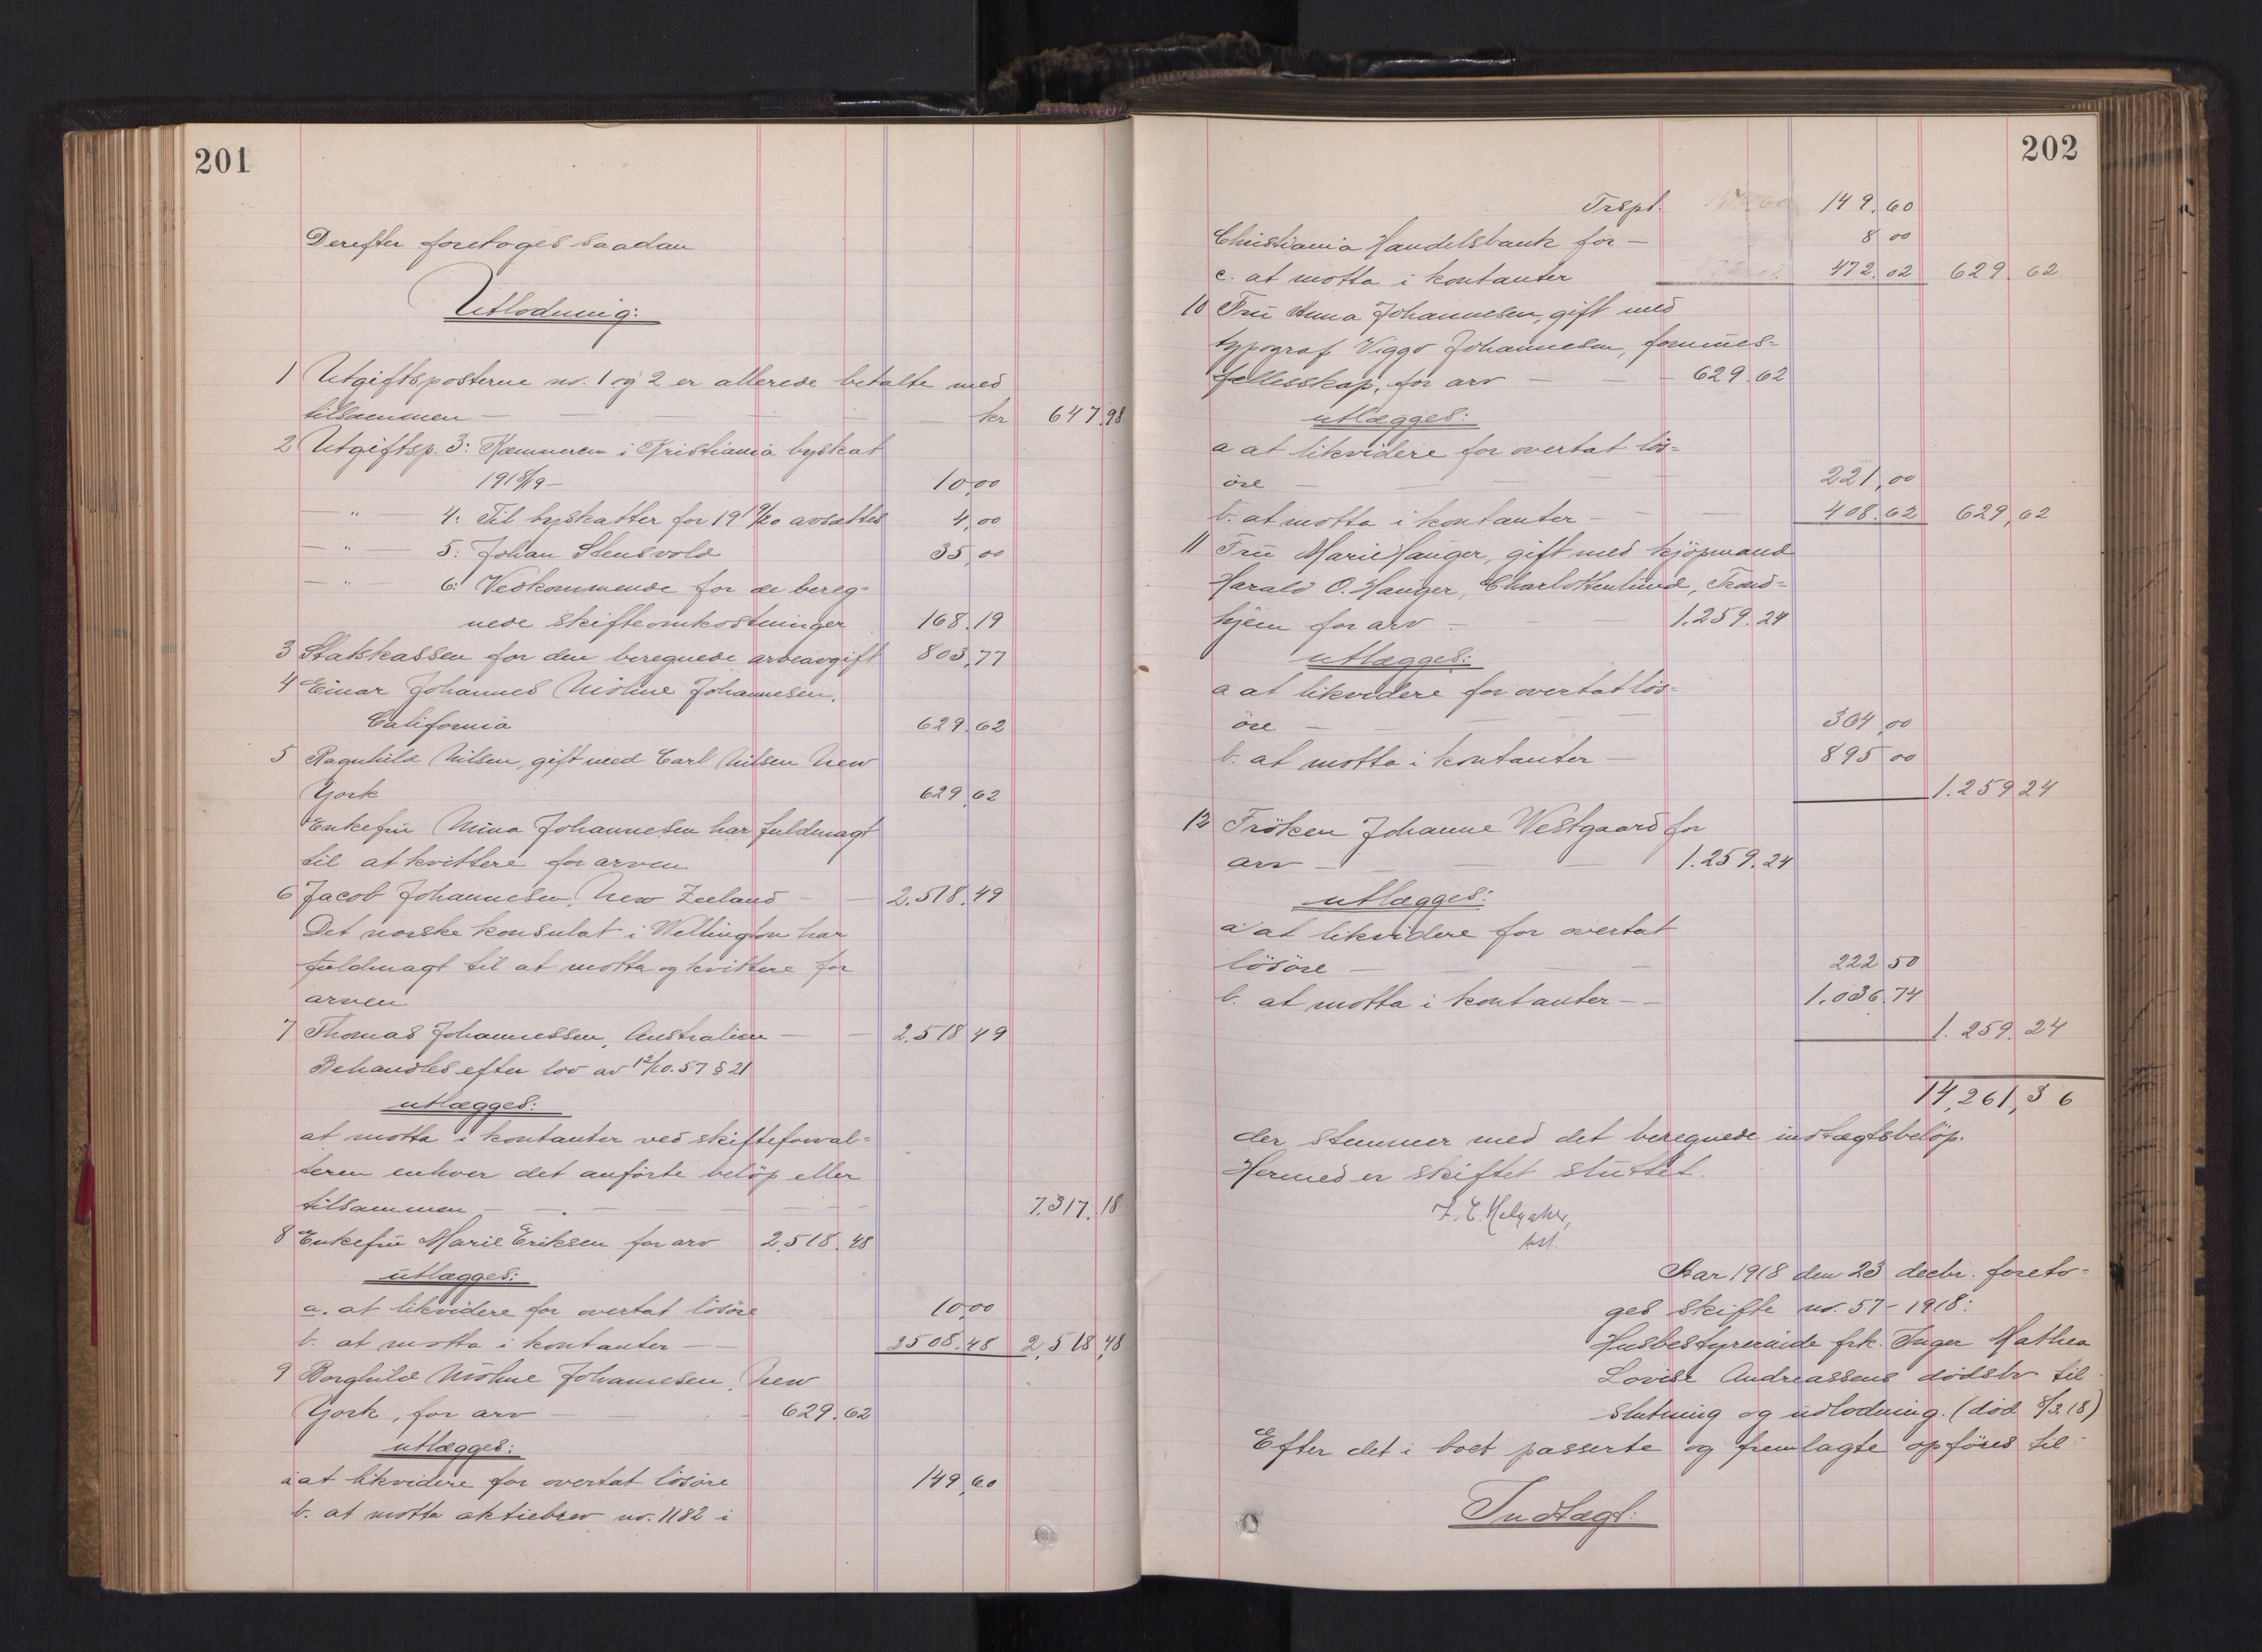 201
Derefter foretoges saadan
Utlodning:
1 Utgiftsposterne nr. 1 og 2 er allerede betalte med
tilsammen — — — — — kr 647.98
2 Utgiftsp. 3: Kæmneren i Kristiania byskat
1918/19 — 10,00
— " — 4: Til byskatter for 1919/20 avsættes 4,00
— " — 5: Johan Stensvold 35,00
— " — 6: Vedkommende for de bereg-
nede skifteomkostninger 168.19
3 Statskassen for den beregnede arveavgift 803,77
4 Einar Johannes Möhne Johannesen,
California 629.62
5 Ragnhild Nilsen, gift med Carl Nilsen New
York 629,62
Enkefru Mina Johannesen har fuldmagt
til at kvittere for arven
6 Jacob Johannesen, New Zeeland — — 2.518.49
Det norske konsulat i Wellington har
fuldmagt til at motta og kvittere for
arven
7 Thomas Johannessen, Australien — — 2.518 49
Behandles efter lov av 12/10.57 § 21
utlægges:
at motta i kontanter ved skifteforval-
teren enhver det anförte belöp eller
tilsammen — — — — — — 7.317.18
8 Enkefru Marie Eriksen for arv 2,518.48
utlægges:
a. at likvidere for overtat lösöre 10,00
b. at motta i kontanter — — 2508.48 2,518,48
9 Borghild Möhne Johannesen, New
York, for arv — — 629.62
utlægges:
a at likvidere for overtat lösöre 149,60
b. at motta aktiebrev nr. 1182 i
202
Trspt. 149.60
Christiania Handelsbank for — 8 00
c. at motta i kontanter 472.02 629.62
10 Fru Anna Johannesen, gift med
typograf Viggo Johannesen, formues-
fellesskap, for arv — — — 629.62
utlægges:
a at likvidere for overtat lös-
öre — — — — 221,00
b. at motta i kontanter — — — 408.62 629,62
11 Fru Marie Hauger, gift med kjöpmand
Harald O. Hauger, Charlottenlund, Trond-
hjem for arv — — 1.259.24
utlægges:
a at likvidere for overtat lös-
öre — — — — 364,00
b. at motta i kontanter — 895 00
1.259 24
12 Fröken Johanne Westgaard for
arv — — — 1.259.24
utlægges:
a at likvidere for overtat
lösöre — — — 222 50
b. at motta i kontanter — — 1.036.74
1.259.24
14,261,36
der stemmer med det beregnede indtægtsbelöp.
Hermed er skiftet sluttet.
Aar 1918 den 23 decbr. foreto-
ges skifte nr. 57-1918:
Husbestyrerinde frk. Inger Mathea
Lovise Andreassens dödsbo til
slutning og utlodning. (död 8/3.18)
Efter det i boet passerte og fremlagte opföres til
Indtægt: